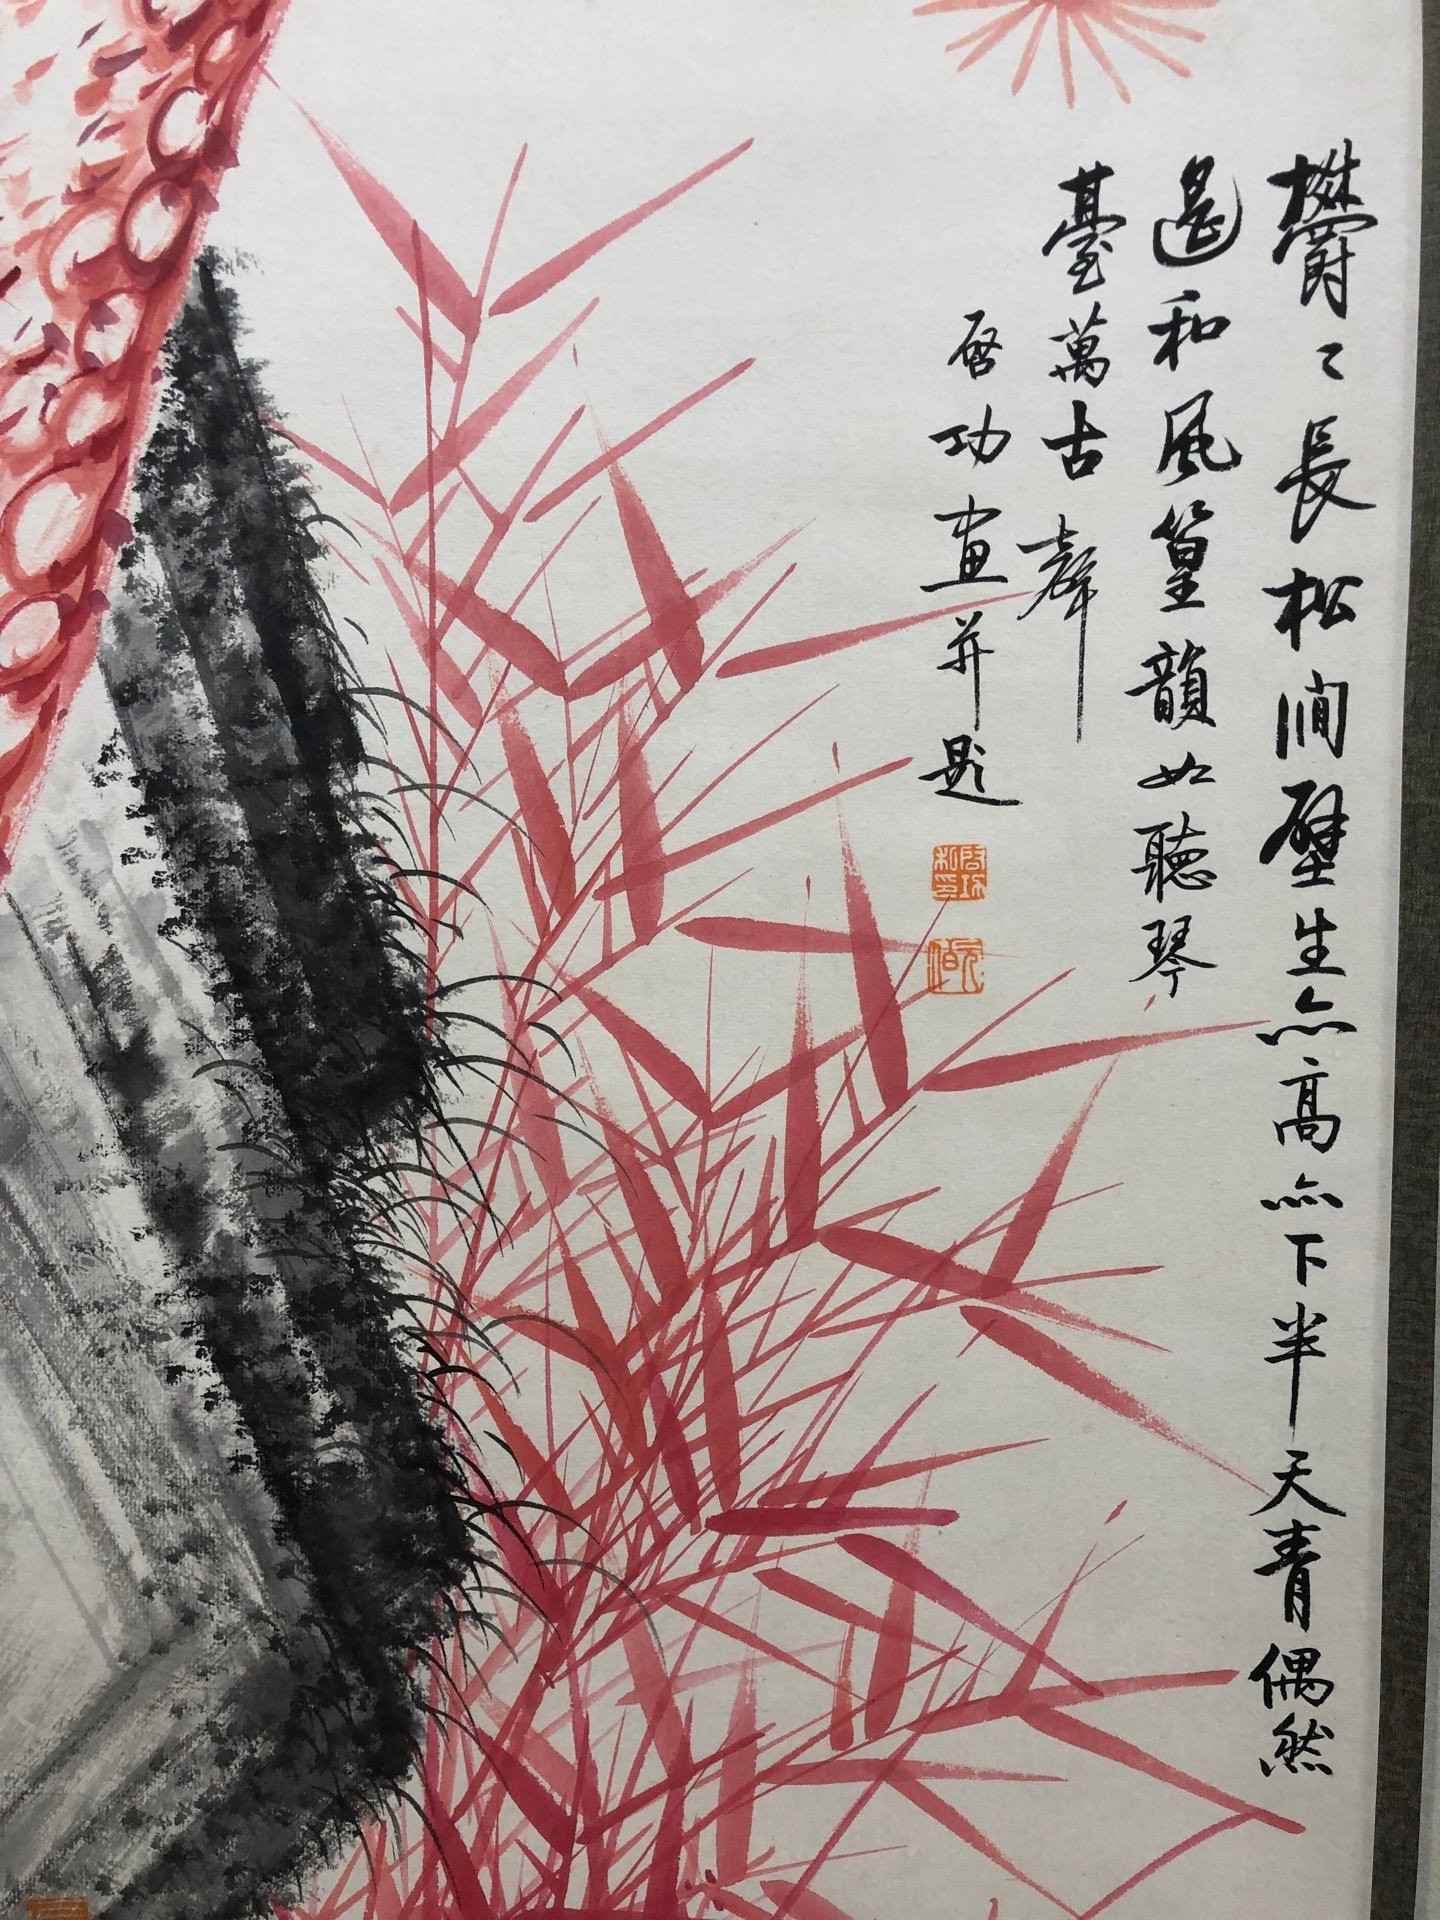 欝〻長松澗壁生亦高亦下半天青偶然
遥和風篁韻如聽琴
臺萬古聲
啓功畫并題